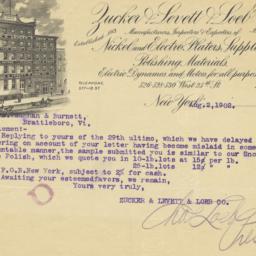 Zucker & Levett & Loeb
Manufacturers, Importers & Exporters of
Nickel and Electro Platers, Supplies
Polishing Materials,
Electric Dynamos and Motors, for all purposes
526-528-530 West 25th St.
New York, Aug. 2, 1902.
& Burnett,
Brattleboro, Vt.
Replying to yours of the 29th ultimo, which we have delayed
ering on account of your letter having become mislaid in some
ntable manner, the sample submitted you is similar to our
Polish, which we quote you in 10-lb. lots at 15¢ per lb.
25-lb. lots 12½ " "
F.O.B. New York, subject to 2% for cash.
Awaiting your esteemed favors, we remain,
Yours very truly,
ZUCKER & LEVETT & LOEB CO.